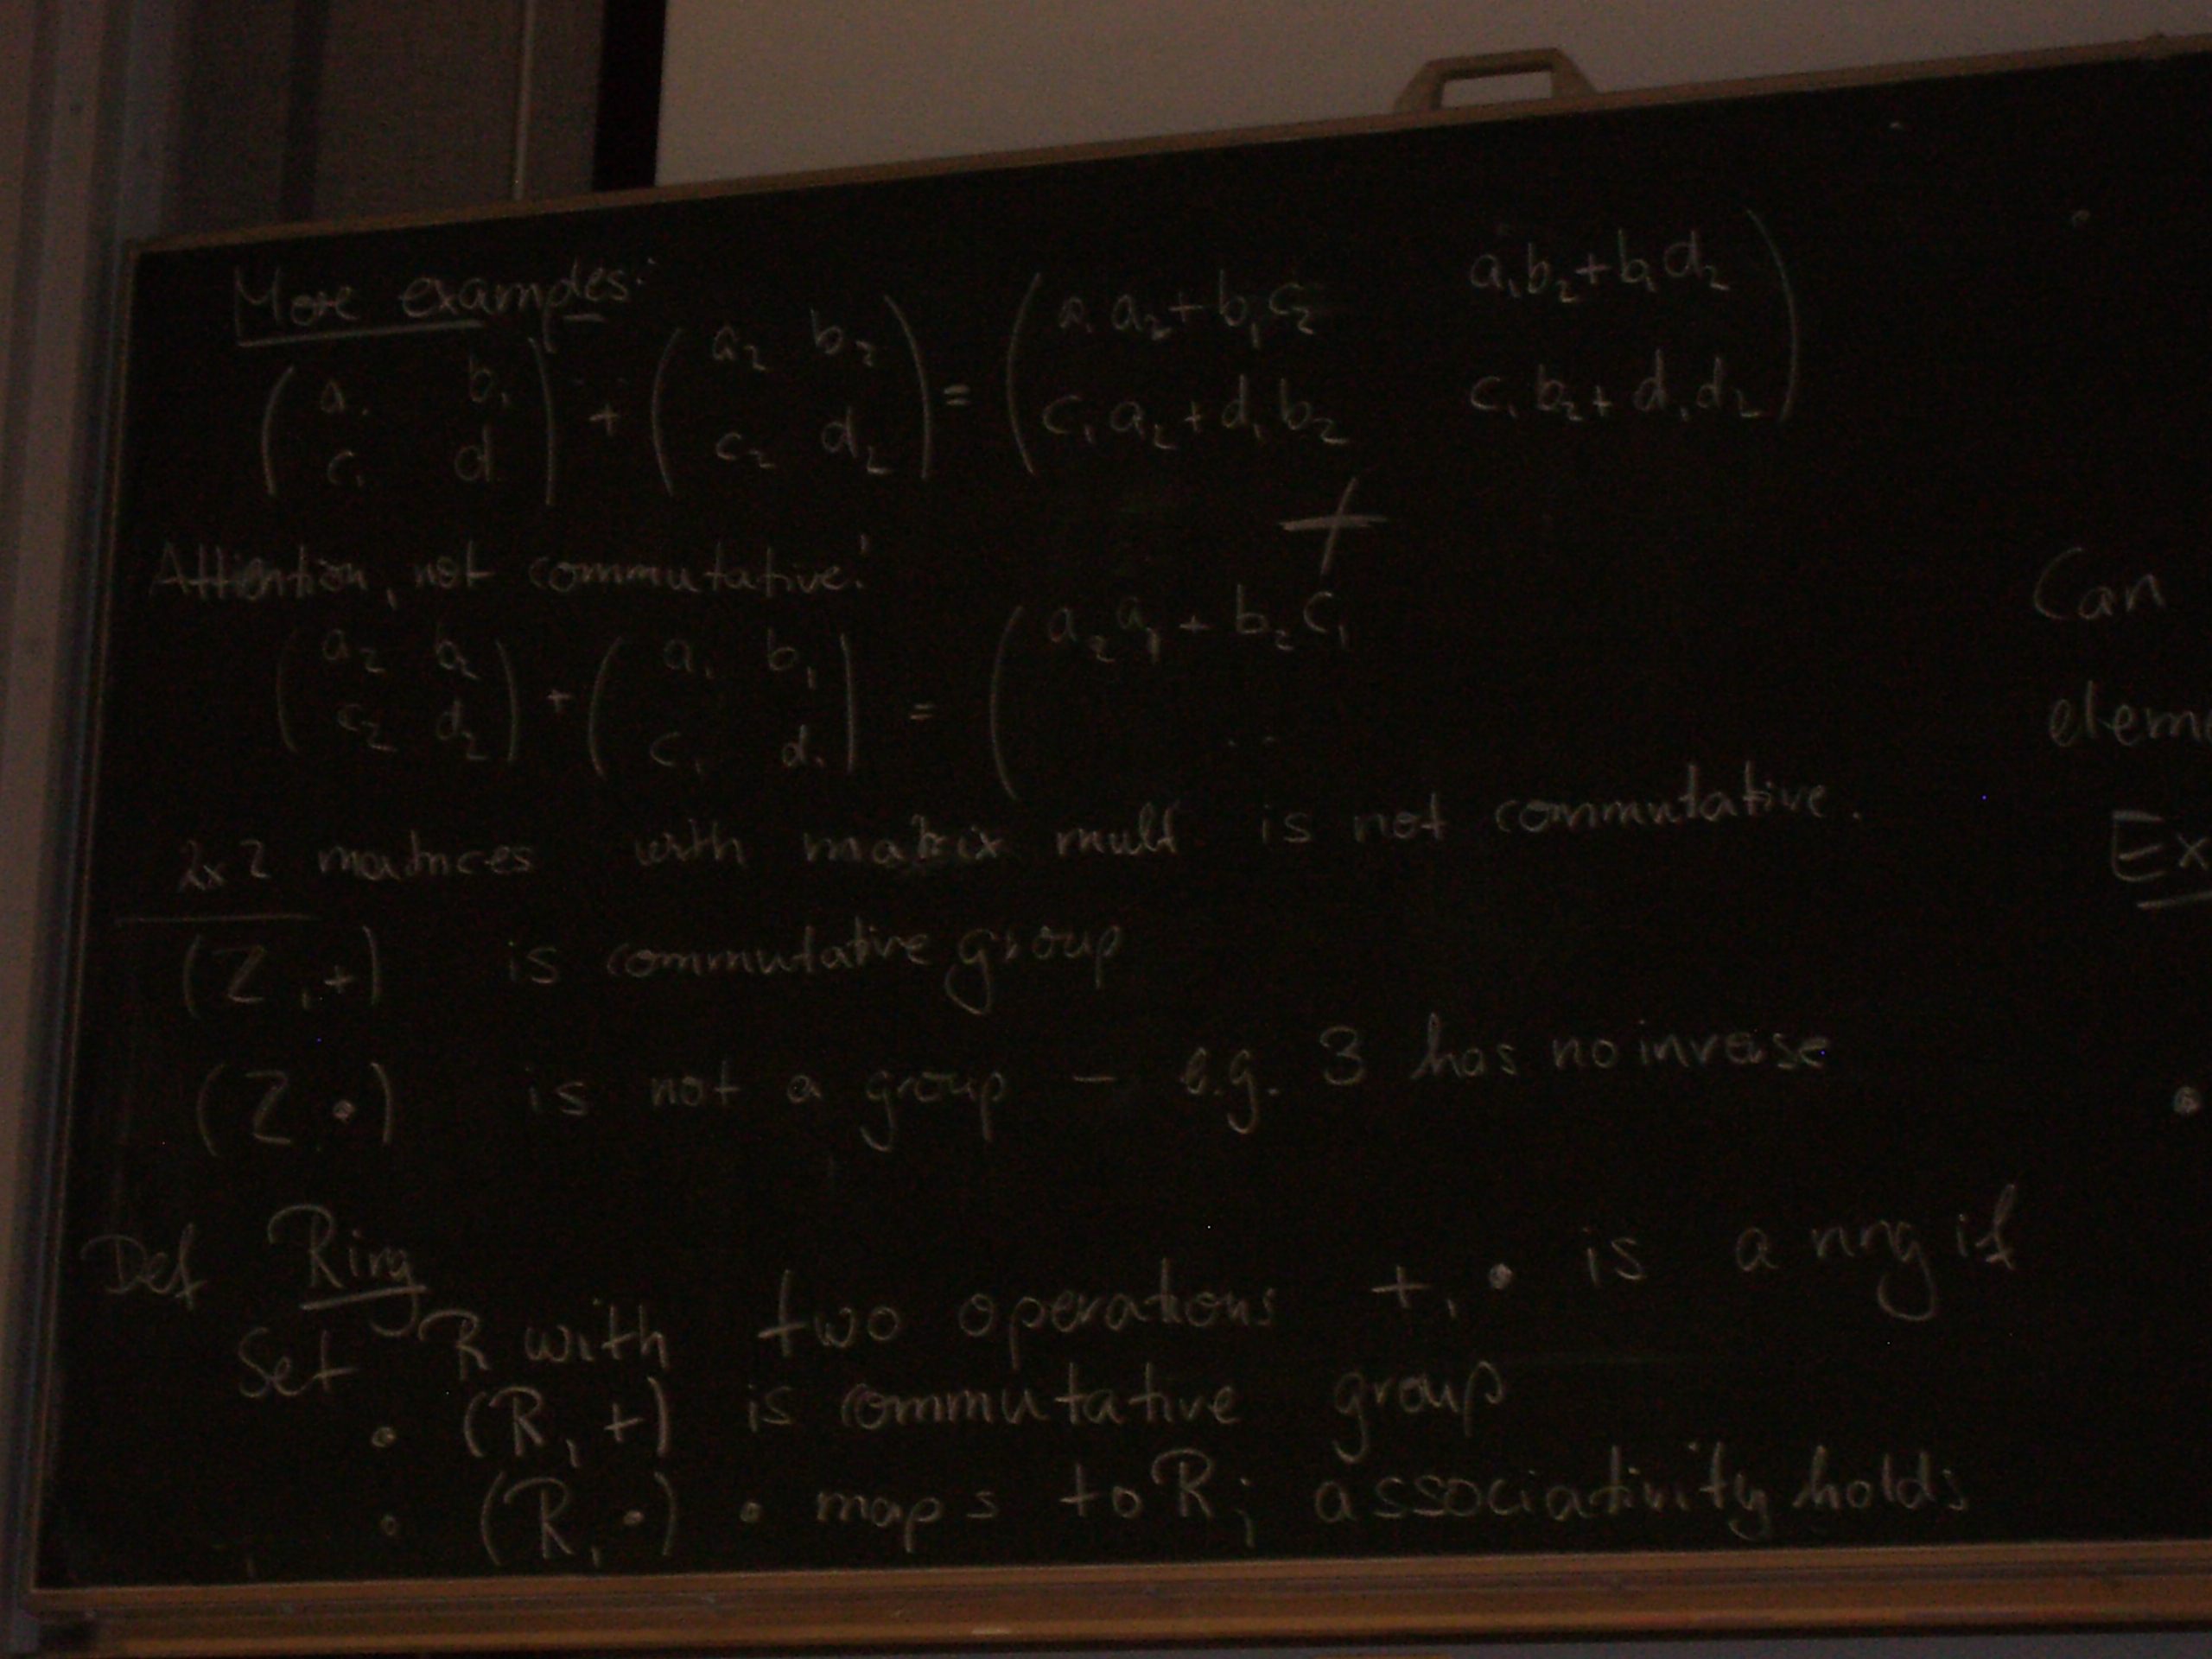 More examples:
( a₁ b₁ ; c₁ d ) + ( a₂ b₂ ; c₂ d₂ ) = ( a₁ a₂ + b₁ c₂   a₁ b₂ + b₁ d₂ ; c₁ a₂ + d₁ b₂   c₁ b₂ + d₁ d₂ )
≠
Attention, not commutative!
( a₂ b₂ ; c₂ d₂ ) + ( a₁ b₁ ; c₁ d₁ ) = ( a₂ a₁ + b₂ c₁ ..
2x2 matrices with matrix mult is not commutative.
(Z, +) is commutative group
(Z •) is not a group - e.g. 3 has no inverse
Def Ring
Set R with two operations +, • is a ring if
• (R, +) is commutative group
• (R, •) • maps to R; associativity holds
Can
elem
Ex
•